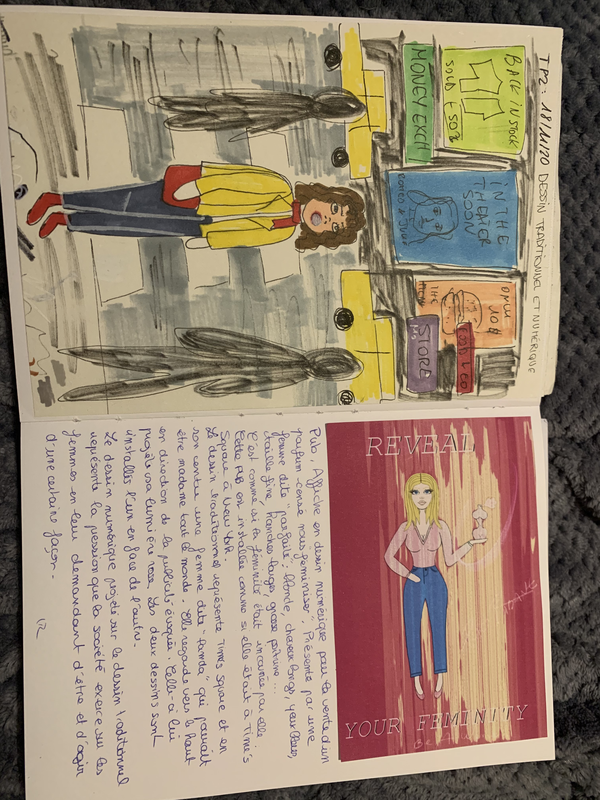 TP2 : 18/11/20 DESSIN TRADITIONNEL ET NUMÉRIQUE
BACK IN STOCK
SOLD -50%
MONEY EXCH
IN THE
THEATER
SOON
ROMEO & JULIET
ONLY
10$
STORE
REVEAL
YOUR FEMINITY
Pub, Affiche en dessin numérique pour la vente d'un
parfum censé nous féminiser". Présenté par une
femme dite "parfaite": blonde, cheveux longs, yeux bleus,
taille fine, hanches larges, grosse poitrine...
C'est comme si la féminité était incarnée par elle.
Cette PUB est installée comme si elle était à Time's
Square à New York.
Le dessin traditionnel représente Times Square et en
son centre une femme dite "lambda" qui pourrait
être madame tout le monde. Elle regarde vers le haut
en direction de la publicité jusqu'à Celle-ci lui
projète sa lumière rose. Les deux dessins sont
installés l'un en face de l'autre.
Le dessin numérique projeté sur le dessin traditionnel
représente la pression que la société exerce sur les
femmes en leur demandant d'être et d'agir
d'une certaine façon.